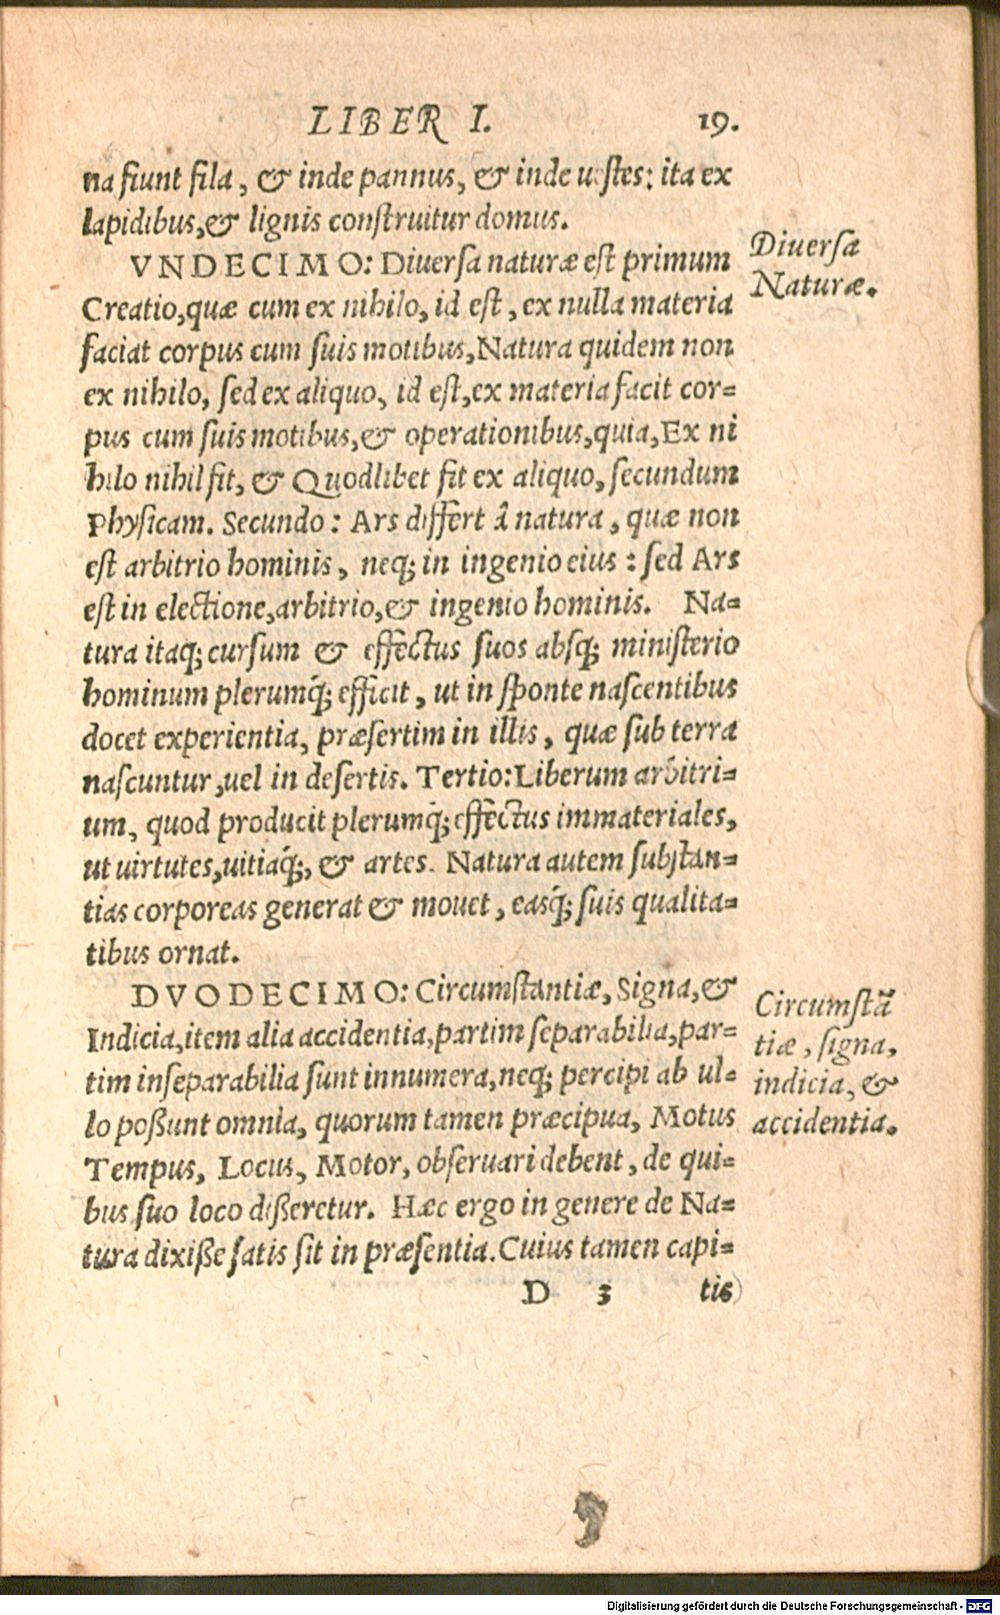 LIBER I. 19.
na fiunt fila, & inde pannus, & inde uestes: ita ex
lapidibus, & lignis construitur domus.
VNDECIMO: Diuersa naturæ est primum
Creatio, quæ cum ex nihilo, id est, ex nulla materia
faciat corpus cum suis motibus, Natura quidem non
ex nihilo, sed ex aliquo, id est, ex materia facit cor=
pus cum suis motibus, & operationibus, quia, Ex ni
hilo nihil fit, & Quodlibet fit ex aliquo, secundum
Physicam. Secundo: Ars differt à natura, quæ non
est arbitrio hominis, neq; in ingenio eius: sed Ars
est in electione, arbitrio, & ingenio hominis. Na=
tura itaq; cursum & effectus suos absq; ministerio
hominum plerumq́; efficit, ut in sponte nascentibus
docet experientia, præsertim in illis, quæ sub terra
nascuntur, uel in desertis. Tertio: Liberum arbitri=
um, quod producit plerumq́; effectus immateriales,
ut uirtutes, uitiaq́;, & artes. Natura autem substan=
tias corporeas generat & mouet, easq́; suis qualita=
tibus ornat.
DVODECIMO: Circumstantiæ, Signa, &
Indicia, item alia accidentia, partim separabilia, par=
tim inseparabilia sunt innumera, neq; percipi ab ul=
lo poßunt omnia, quorum tamen præcipua, Motus
Tempus, Locus, Motor, obseruari debent, de qui=
bus suo loco dißeretur. Hæc ergo in genere de Na=
tura dixiße satis sit in præsentia. Cuius tamen capi=
D 3 tis
Diuersa
Naturæ.
Circumstā
tiæ, signa,
indicia, &
accidentia.
Digitalisierung gefördert durch die Deutsche Forschungsgemeinschaft - DFG